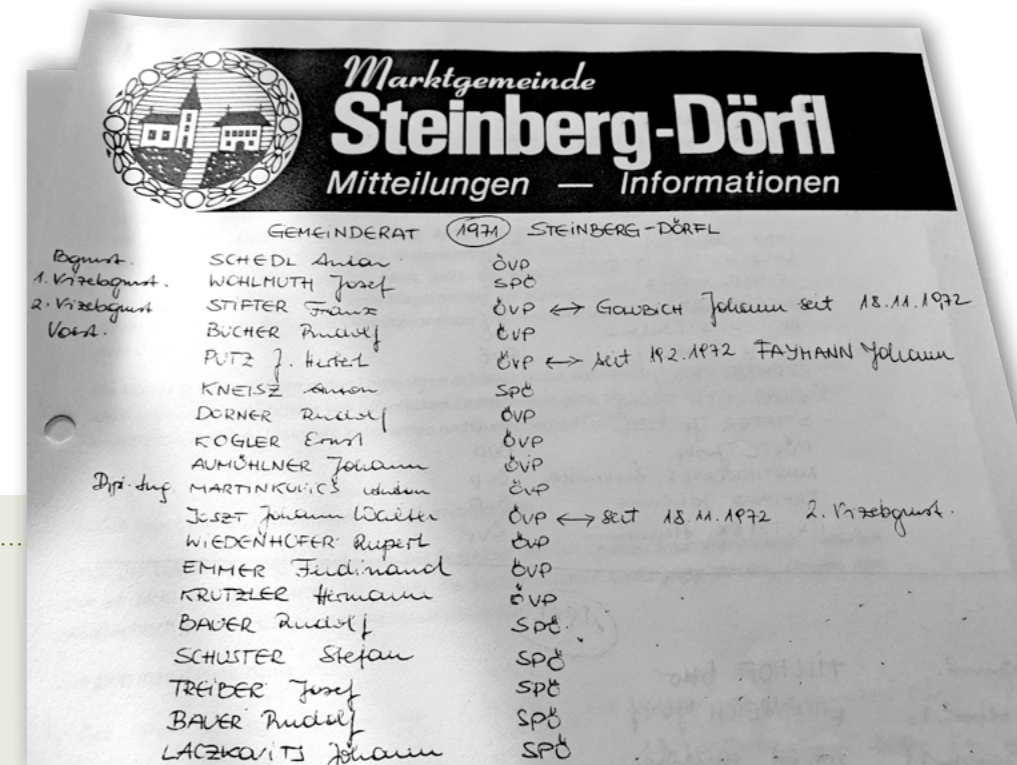 Marktgemeinde
Steinberg-Dörfl
Mitteilungen — Informationen
GEMEINDERAT 1971 STEINBERG-DÖRFL
Bgmst. SCHEDL Anton ÖVP
1. Vizebgmst. WOHLMUTH Josef SPÖ
2. Vizebgmst STIFTER Franz ÖVP ↔ GOLUBICH Johann seit 18.11.1972
Vorst. BÜCHER Rudolf ÖVP
PUTZ J. ÖVP ↔ seit 19.2.1972 FAYMANN Johann
KNEISZ Anton SPÖ
DORNER Rudolf ÖVP
KOGLER Ernst ÖVP
AUMÜHLNER Johann ÖVP
Dipl. Ing. MARTINKOVICS ÖVP
JOSZT Johann Walter ÖVP ↔ seit 18.11.1972 2. Vizebgmst.
WIEDENHOFER Rupert ÖVP
EMMER Ferdinand ÖVP
KRUTZLER Hermann ÖVP
BAUER Rudolf SPÖ
SCHUSTER Stefan SPÖ
TREIBER Josef SPÖ
BAUER Rudolf SPÖ
LACZKOVITS Johann SPÖ